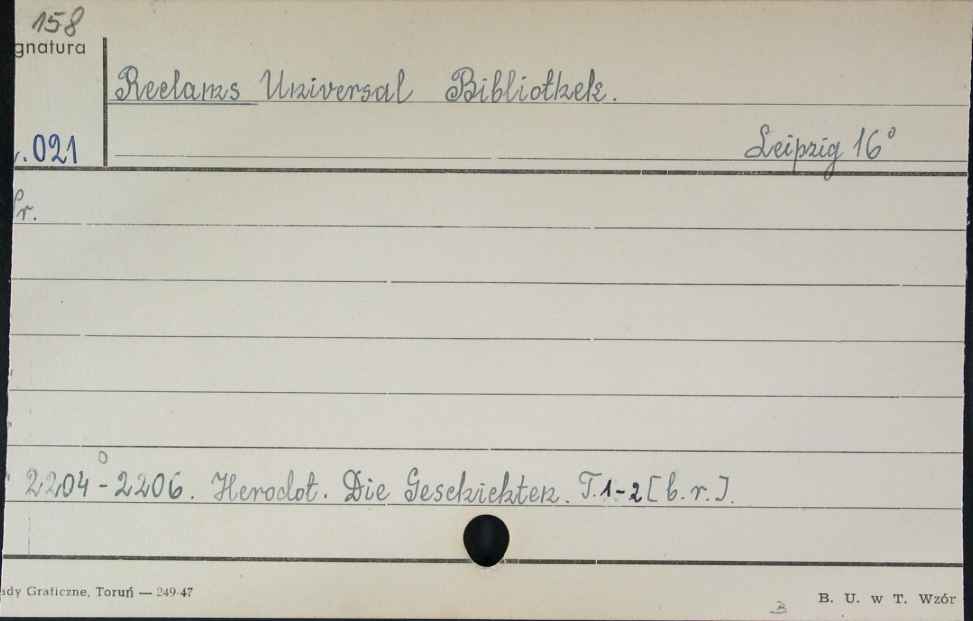 158
gnatura
Reclams Universal Bibliothek.
.021
Leipzig 16°
r.
2204-2206. Herodot. Die Geschichten. T. 1-2 [b.r.].
ady Graficzne, Toruń — 249-47
B. U. w T. Wzór